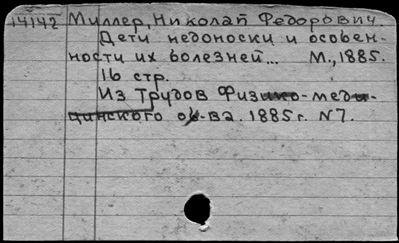 14142 Миллер, Николай Федорович.
Дети недоноски и особен-
ности их болезней... М., 1885.
16 стр.
Из Трудов Физико-меди-
цинского об-ва. 1885 г. N7.